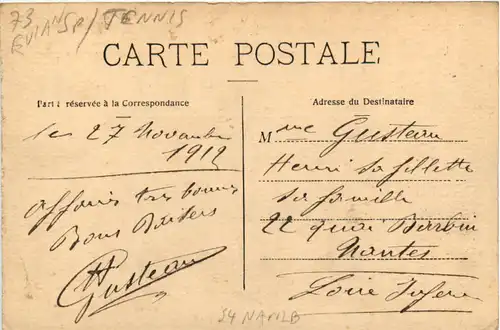 73
EVIAN SP/TENNIS
CARTE POSTALE
Parti réservée à la Correspondance
Adresse du Destinataire
le 27 Novembre
1912
affaires tres bonnes
Bons Baisers
H Gusteau
Mme Gusteau
Henri sa fillette
sa famille
22 quai Barbin
Nantes
Loire Infere